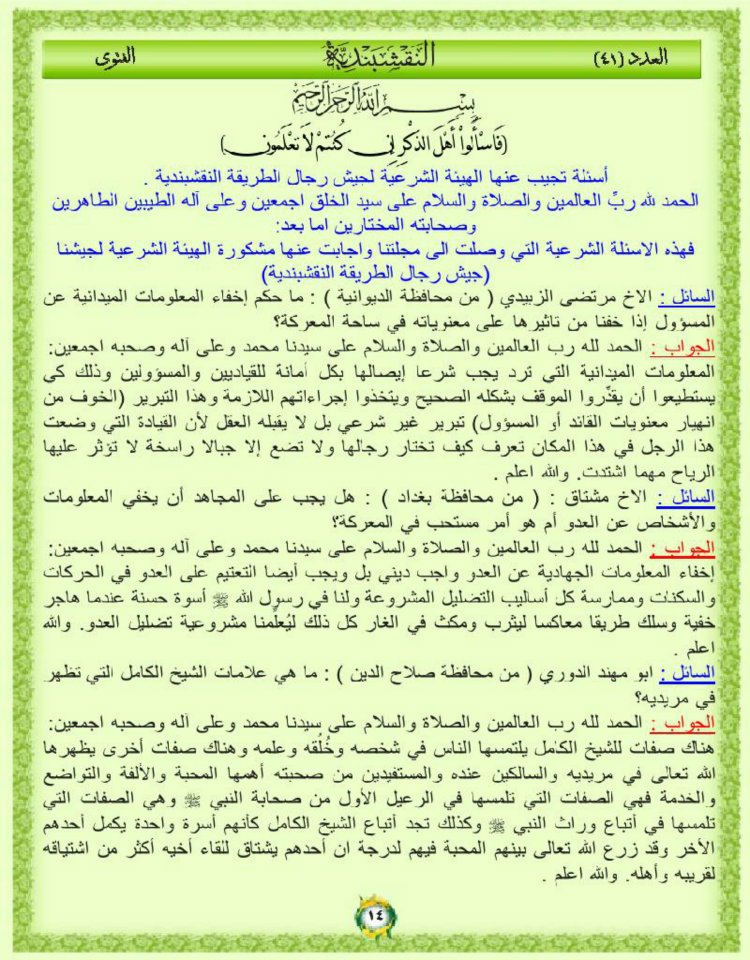 العدد (٤١) النقشبندية الفتوى
بسم الله الرحمن الرحيم
(فَاسْأَلُواْ أَهْلَ الذِّكْرِ إِن كُنتُمْ لاَ تَعْلَمُون)
أسئلة تجيب عنها الهيئة الشرعية لجيش رجال الطريقة النقشبندية .
الحمد لله ربِّ العالمين والصلاة والسلام على سيد الخلق اجمعين وعلى آله الطيبين الطاهرين
وصحابته المختارين اما بعد:
فهذه الاسئلة الشرعية التي وصلت الى مجلتنا واجابت عنها مشكورة الهيئة الشرعية لجيشنا
(جيش رجال الطريقة النقشبندية)
السائل : الاخ مرتضى الزبيدي ( من محافظة الديوانية ) : ما حكم إخفاء المعلومات الميدانية عن
المسؤول إذا خفنا من تاثيرها على معنوياته في ساحة المعركة؟
الجواب : الحمد لله رب العالمين والصلاة والسلام على سيدنا محمد وعلى آله وصحبه اجمعين:
المعلومات الميدانية التي ترد يجب شرعا إيصالها بكل أمانة للقياديين والمسؤولين وذلك كي
يستطيعوا أن يقدِّروا الموقف بشكله الصحيح ويتخذوا إجراءاتهم اللازمة وهذا التبرير (الخوف من
انهيار معنويات القائد أو المسؤول) تبرير غير شرعي بل لا يقبله العقل لأن القيادة التي وضعت
هذا الرجل في هذا المكان تعرف كيف تختار رجالها ولا تضع إلا جبالا راسخة لا تؤثر عليها
الرياح مهما اشتدت. والله اعلم .
السائل : الاخ مشتاق : ( من محافظة بغداد ) : هل يجب على المجاهد أن يخفي المعلومات
والأشخاص عن العدو أم هو أمر مستحب في المعركة؟
الجواب : الحمد لله رب العالمين والصلاة والسلام على سيدنا محمد وعلى آله وصحبه اجمعين:
إخفاء المعلومات الجهادية عن العدو واجب ديني بل ويجب أيضا التعتيم على العدو في الحركات
والسكنات وممارسة كل أساليب التضليل المشروعة ولنا في رسول الله ﷺ أسوة حسنة عندما هاجر
خفية وسلك طريقا معاكسا ليثرب ومكث في الغار كل ذلك ليُعلِّمنا مشروعية تضليل العدو. والله
اعلم .
السائل : ابو مهند الدوري ( من محافظة صلاح الدين ) : ما هي علامات الشيخ الكامل التي تظهر
في مريديه؟
الجواب : الحمد لله رب العالمين والصلاة والسلام على سيدنا محمد وعلى آله وصحبه اجمعين:
هناك صفات للشيخ الكامل يلتمسها الناس في شخصه وخُلُقه وعلمه وهناك صفات أخرى يظهرها
الله تعالى في مريديه والسالكين عنده والمستفيدين من صحبته أهمها المحبة والألفة والتواضع
والخدمة فهي الصفات التي تلمسها في الرعيل الأول من صحابة النبي ﷺ وهي الصفات التي
تلمسها في أتباع وراث النبي ﷺ وكذلك تجد أتباع الشيخ الكامل كأنهم أسرة واحدة يكمل أحدهم
الأخر وقد زرع الله تعالى بينهم المحبة فيهم لدرجة ان أحدهم يشتاق للقاء أخيه أكثر من اشتياقه
لقريبه وأهله. والله اعلم .
١٤